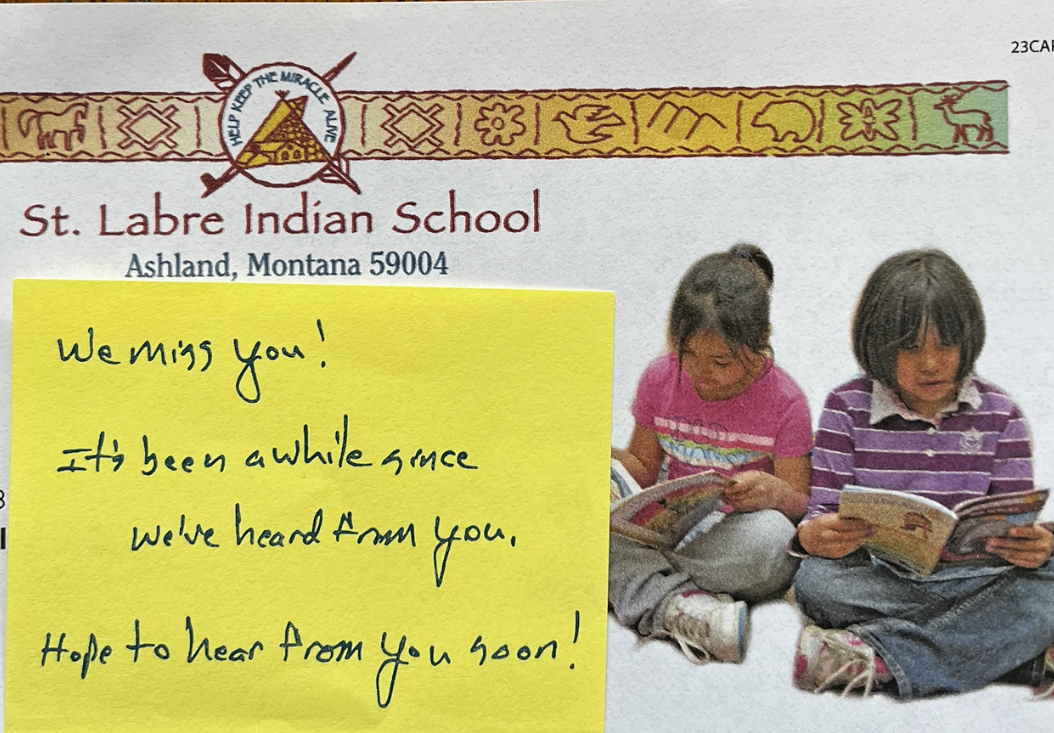 23CAP
HELP KEEP THE MIRACLE ALIVE
St. Labre Indian School
Ashland, Montana 59004
We miss you!
It's been awhile since
we've heard from you.
Hope to hear from you soon!